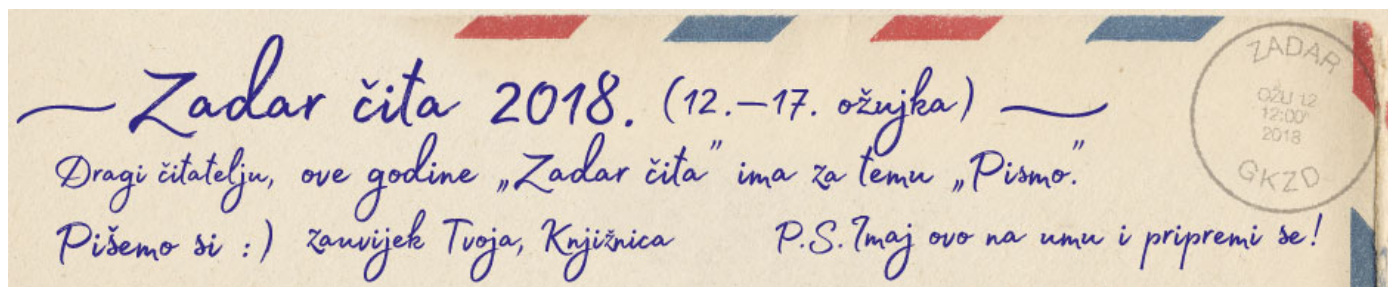 Zadar čita 2018. (12.–17. ožujka)
Dragi čitatelju, ove godine „Zadar čita” ima za temu „Pismo.”
Pišemo si :) zauvijek Tvoja, Knjižnica P.S. Imaj ovo na umu i pripremi se!
ZADAR
OŽU 12
12:00
2018
GKZD